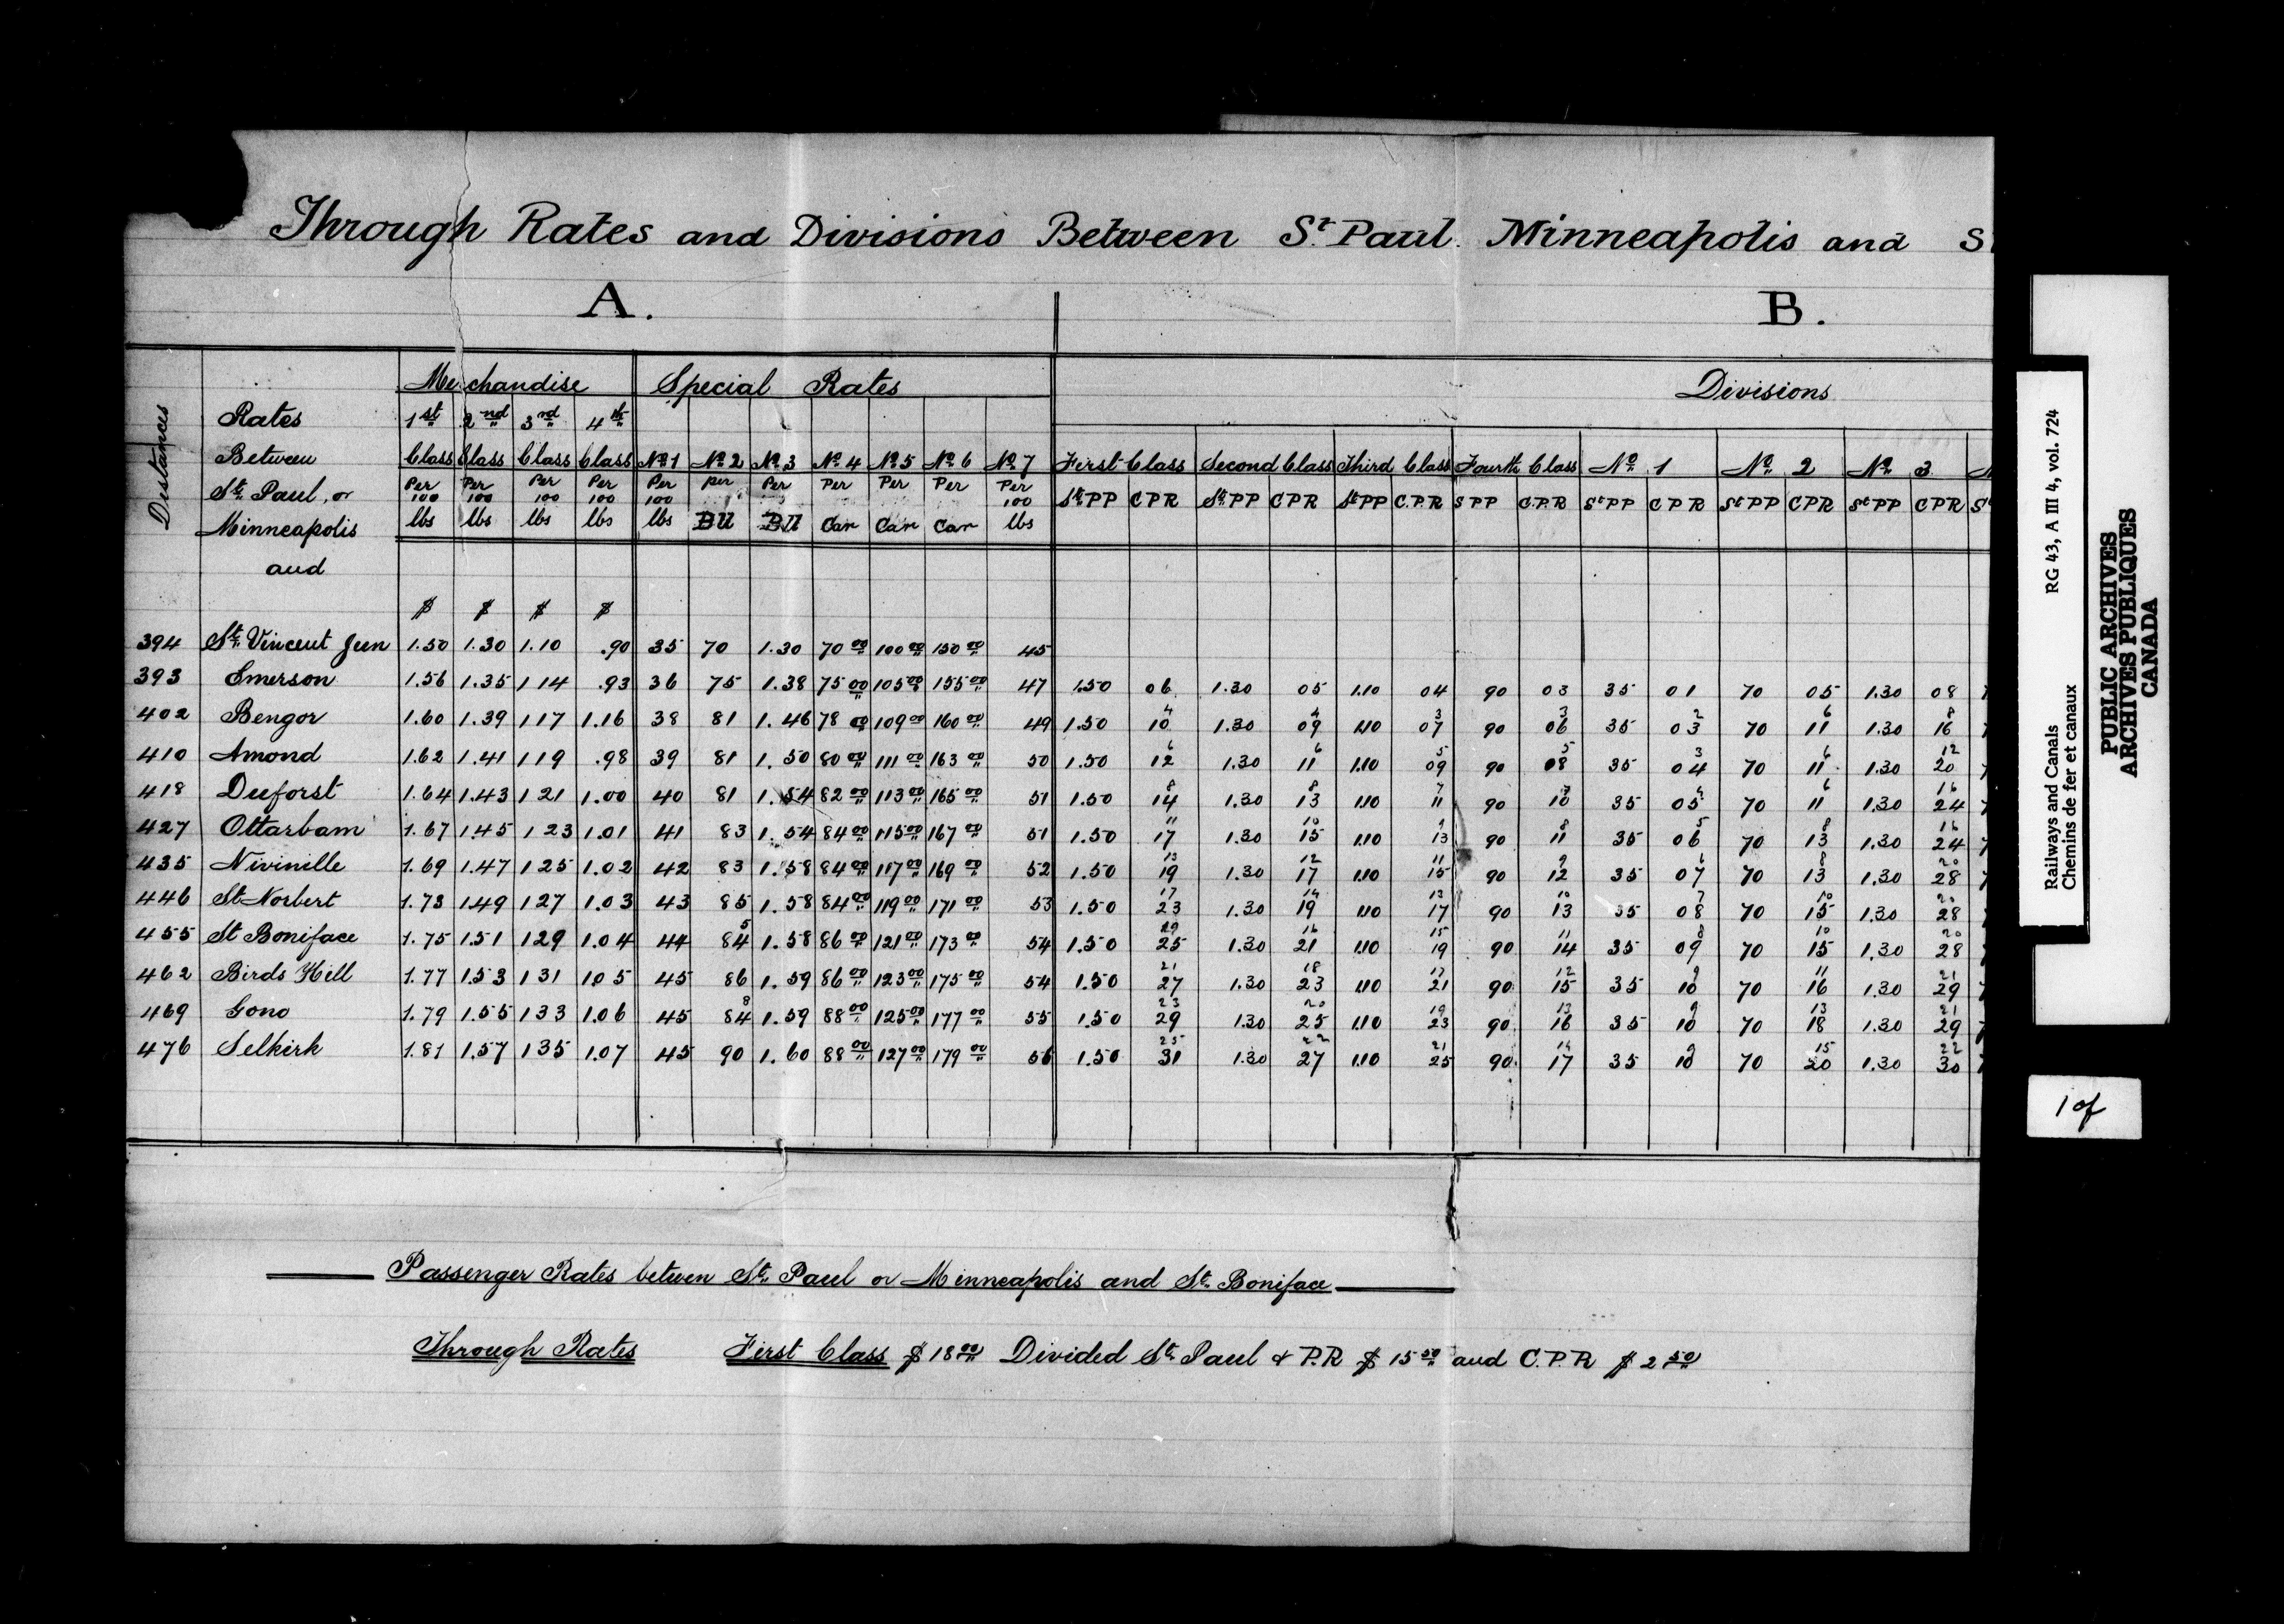 Through Rates and Divisions Between St. Paul. Minneapolis and S
A. B.
Merchandise Special Rates Divisions
Distances
Rates 1st 2nd 3rd 4th
Between Class Class Class Class No 1 No 2 No 3 No 4 No 5 No 6 No 7 First Class Second Class Third Class Fourth Class No 1 No 2 No 3
St. Paul, or Per 100 Per 100 Per 100 Per 100 Per 100 per Per Per Per Per Per 100 St. PP CPR St. PP CPR St PP C.P.R S PP C.P.R St PP CPR St PP CPR St PP CPR St
Minneapolis lbs lbs lbs lbs lbs Bll Bll Car Car Car lbs
and
$ $ $ $
394 St. Vincent Jeen 1.50 1.30 1.10 .90 35 70 1.30 70 00 100 00 150 00 45
393 Emerson 1.56 1.35 1 14 .93 36 75 1.38 75 00 105 00 155 00 47 1.50 06 1.30 05 1.10 04 90 03 35 01 70 05 1.30 08
402 Bengor 1.60 1.39 1 17 1.16 38 81 1.46 78 00 109 00 160 00 49 1.50 4 10 1.30 4 09 1.10 3 07 90 3 06 35 2 03 70 6 11 1.30 8 16
410 Amond 1.62 1.41 1 19 .98 39 81 1.50 80 00 111 00 163 00 50 1.50 6 12 1.30 6 11 1.10 5 09 90 5 08 35 3 04 70 6 11 1.30 12 20
418 Deeforst 1.64 1.43 1 21 1.00 40 81 1.54 82 00 113 00 165 00 51 1.50 8 14 1.30 8 13 1.10 7 11 90 7 10 35 4 05 70 6 11 1.30 16 24
427 Ottarbam 1.67 1.45 1 23 1.01 41 83 1.54 84 00 115 00 167 00 51 1.50 11 17 1.30 10 15 1.10 9 13 90 8 11 35 5 06 70 8 13 1.30 16 24
435 Nivinille 1.69 1.47 1 25 1.02 42 83 1.58 84 00 117 00 169 00 52 1.50 13 19 1.30 12 17 1.10 11 15 90 9 12 35 6 07 70 8 13 1.30 20 28
446 St Norbert 1.73 1.49 1 27 1.03 43 85 1.58 84 00 119 00 171 00 53 1.50 17 23 1.30 14 19 1.10 13 17 90 10 13 35 7 08 70 10 15 1.30 20 28
455 St Boniface 1.75 1.51 1 29 1.04 44 5 84 1.58 86 00 121 00 173 00 54 1.50 19 25 1.30 16 21 1.10 15 19 90 11 14 35 8 09 70 10 15 1.30 20 28
462 Birds Hill 1.77 1.53 1 31 1.05 45 86 1.59 86 00 123 00 175 00 54 1.50 21 27 1.30 18 23 1.10 17 21 90 12 15 35 9 10 70 11 16 1.30 21 29
469 Gono 1.79 1.55 1 33 1.06 45 8 84 1.59 88 00 125 00 177 00 55 1.50 23 29 1.30 20 25 1.10 19 23 90 13 16 35 9 10 70 13 18 1.30 21 29
476 Selkirk 1.81 1.57 1 35 1.07 45 90 1.60 88 00 127 00 179 00 56 1.50 25 31 1.30 22 27 1.10 21 25 90 14 17 35 9 10 70 15 20 1.30 22 30
Passenger Rates betwen St. Paul or Minneapolis and St. Boniface
Through Rates First Class $ 18 00 Divided St. Paul & P.R $ 15 50 and C.P.R $ 2 50
Railways and Canals RG 43, A III 4, vol. 724
Chemins de fer et canaux
PUBLIC ARCHIVES
ARCHIVES PUBLIQUES
CANADA
1 of